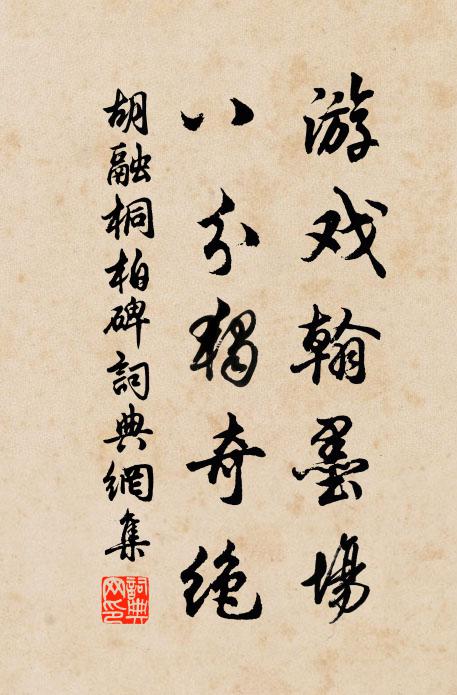 游戏翰墨場
八分獨奇绝
胡融桐柏碑詞典網集
詞典網印